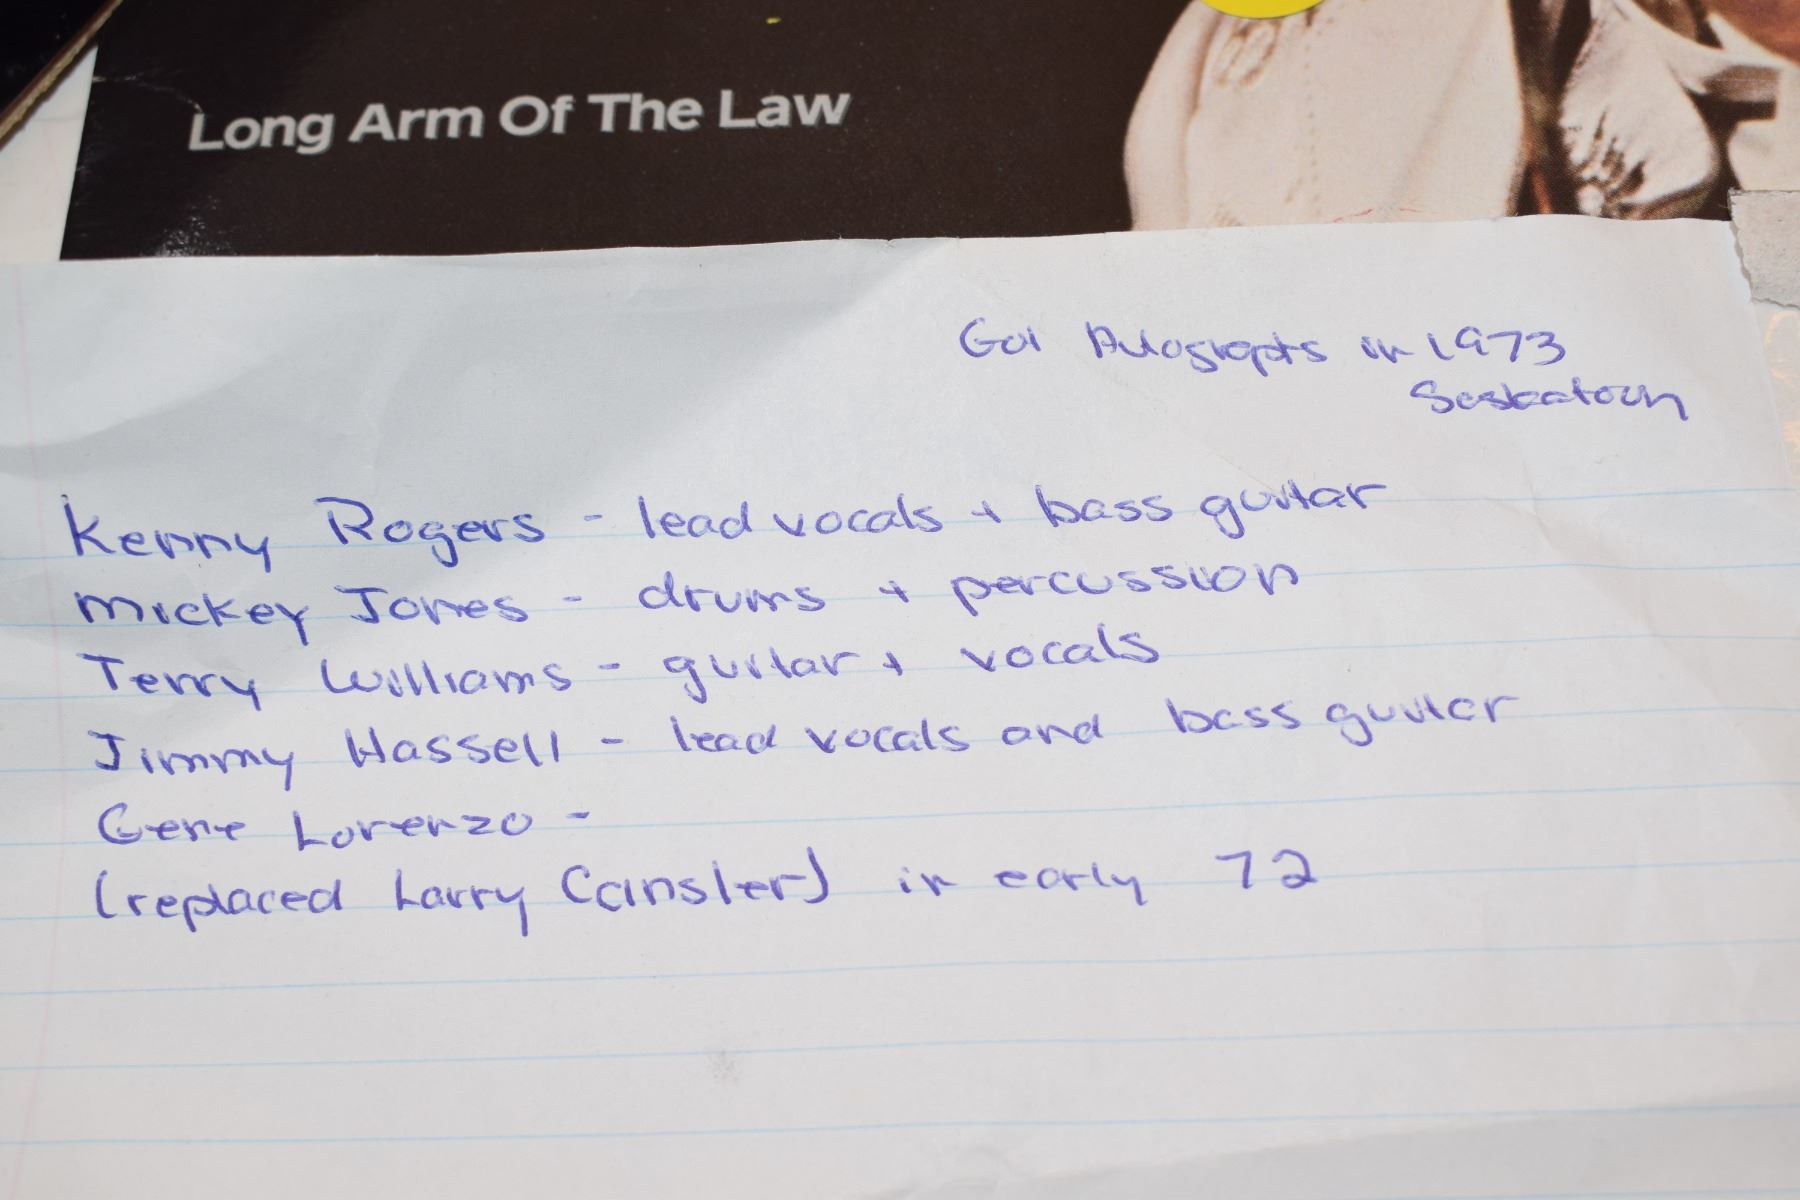 Long Arm Of The Law
Got Autographs in 1973
Saskatoon
Kenny Rogers - lead vocals + bass guitar
Mickey Jones - drums + percussion
Terry Williams - guitar + vocals
Jimmy Hassell - lead vocals and bass guitar
Gene Lorenzo -
(replaced Larry Cansler) in early 72